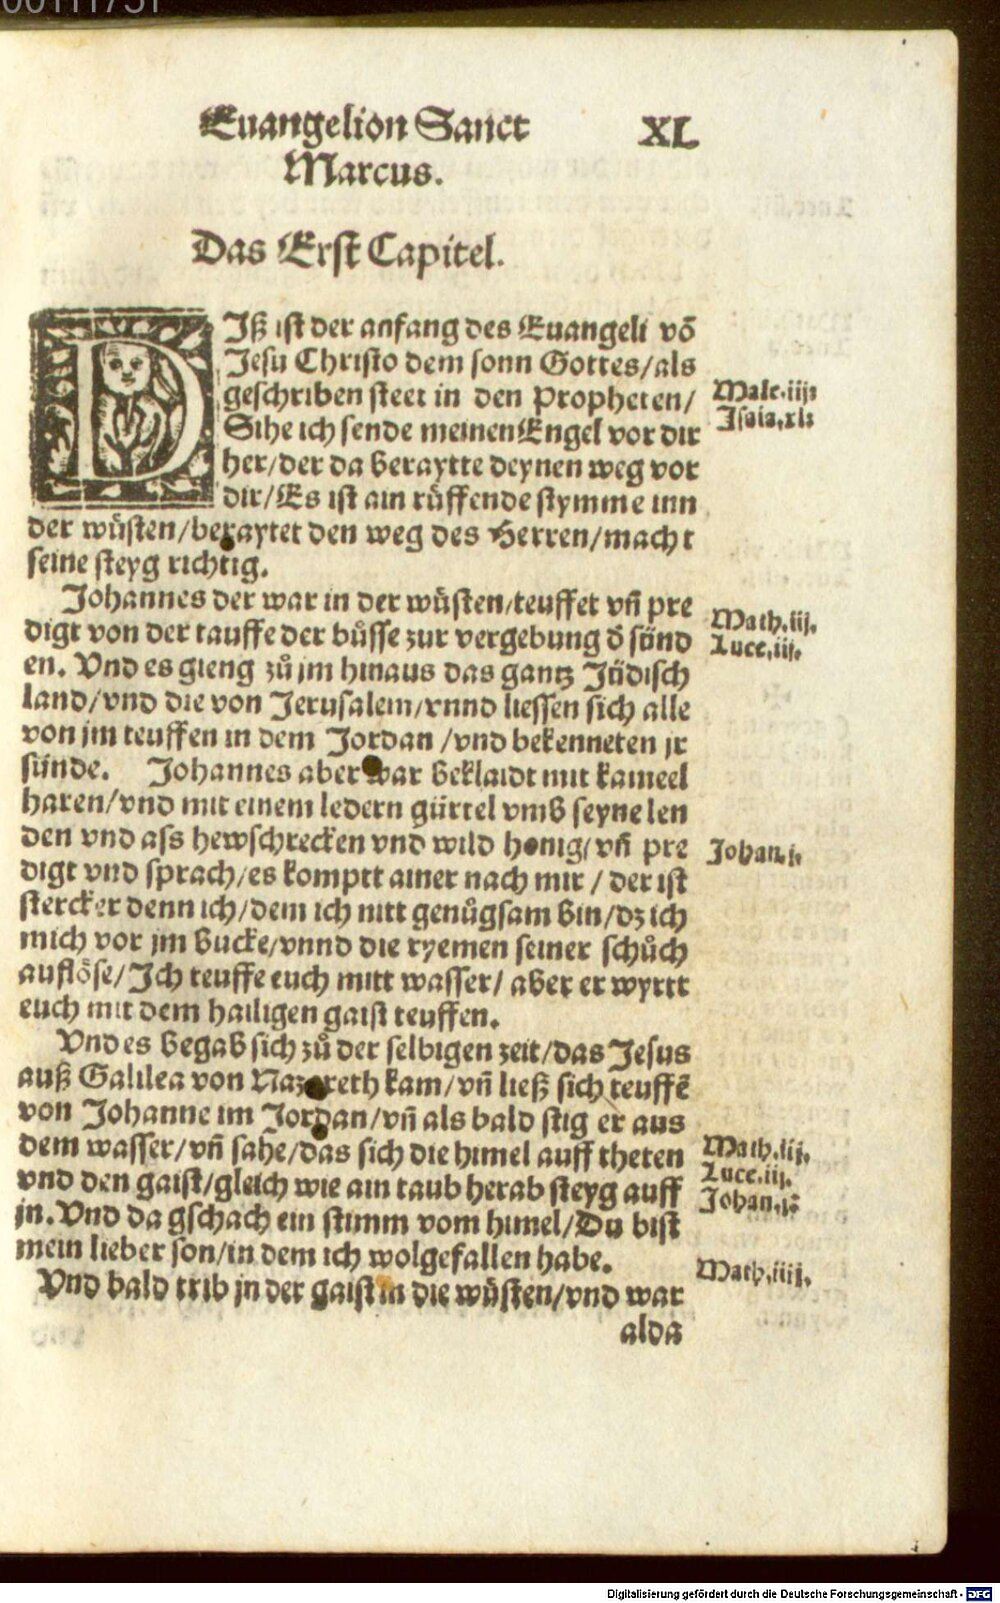 Euangelion Sanct XL
Marcus.
Das Erst Capitel.
DIß ist der anfang des Euangeli võ
Jesu Christo dem sonn Gottes/als
geschriben steet in den Propheten/
Sihe ich sende meinen Engel vor dir
her/der da beraytte deynen weg vor
dir/Es ist ain rüffende stymme inn
der wüsten/beraytet den weg des Herren/macht
seine steyg richtig.
Malc.iij:
Jsaia.xl:
Johannes der war in der wüsten/teuffet vñ pre
digt von der tauffe der bůsse zur vergebung d̄ sünd
en. Vnd es gieng zů jm hinaus das gantz Jüdisch
land/vnd die von Jerusalem/vnnd liessen sich alle
von jm teuffen in dem Jordan /vnd bekenneten jr
sünde. Johannes aber war beklaidt mit kameel
haren/vnd mit einem ledern gürtel vmb seyne len
den vnd ass hewschrecken vnd wild honig/vñ pre
digt vnd sprach/es komptt ainer nach mir / der ist
stercker denn ich/dem ich nitt genůgsam bin/dz ich
mich vor jm bucke/vnnd die ryemen seiner schůch
auflöse/Jch teuffe euch mitt wasser/ aber er wyrtt
euch mit dem hailigen gaist teuffen.
Math.iij.
Luce.iij.
Johan.i.
Vnd es begab sich zů der selbigen zeit/das Jesus
auß Galilea von Nazareth kam/vñ ließ sich teuffē
von Johanne im Jordan/vñ als bald stig er aus
dem wasser/vñ sahe/das sich die himel auff theten
vnd den gaist/gleich wie ain taub herab steyg auff
jn.Vnd da gschach ein stimm vom himel/Du bist
mein lieber son/in dem ich wolgefallen habe.
Math.iij.
Luce.iij.
Johan.i:
Vnd bald trib jn der gaist in die wüsten/vnd war
Math.iiij.
alda
Digitalisierung gefördert durch die Deutsche Forschungsgemeinschaft - DFG